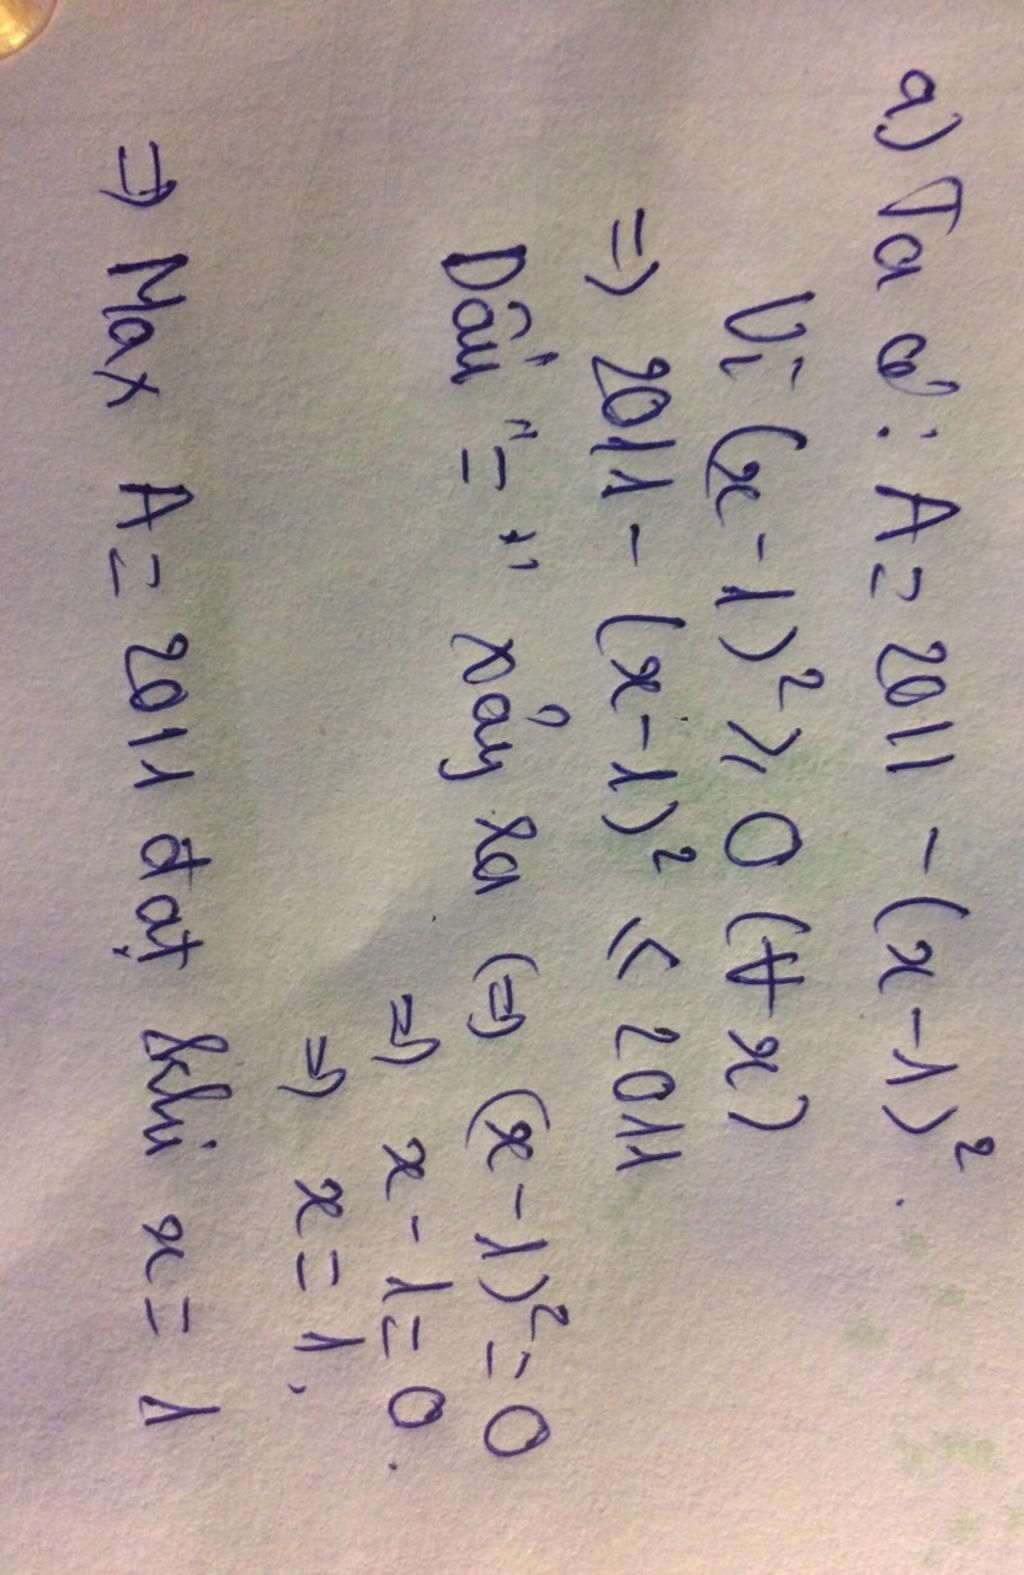 a) Ta có: A = 2011 - (x-1)².
Vì (x-1)² ≥ 0 (∀x)
=> 2011 - (x-1)² ≤ 2011
Dấu "=" xảy ra (=) (x-1)² = 0
=> x-1 = 0.
=> x = 1.
=> Max A = 2011 đạt khi x = 1